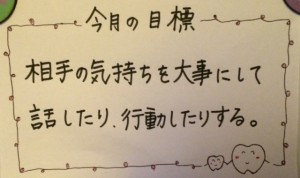 今月の目標
相手の気持ちを大事にして
話したり、行動したりする。